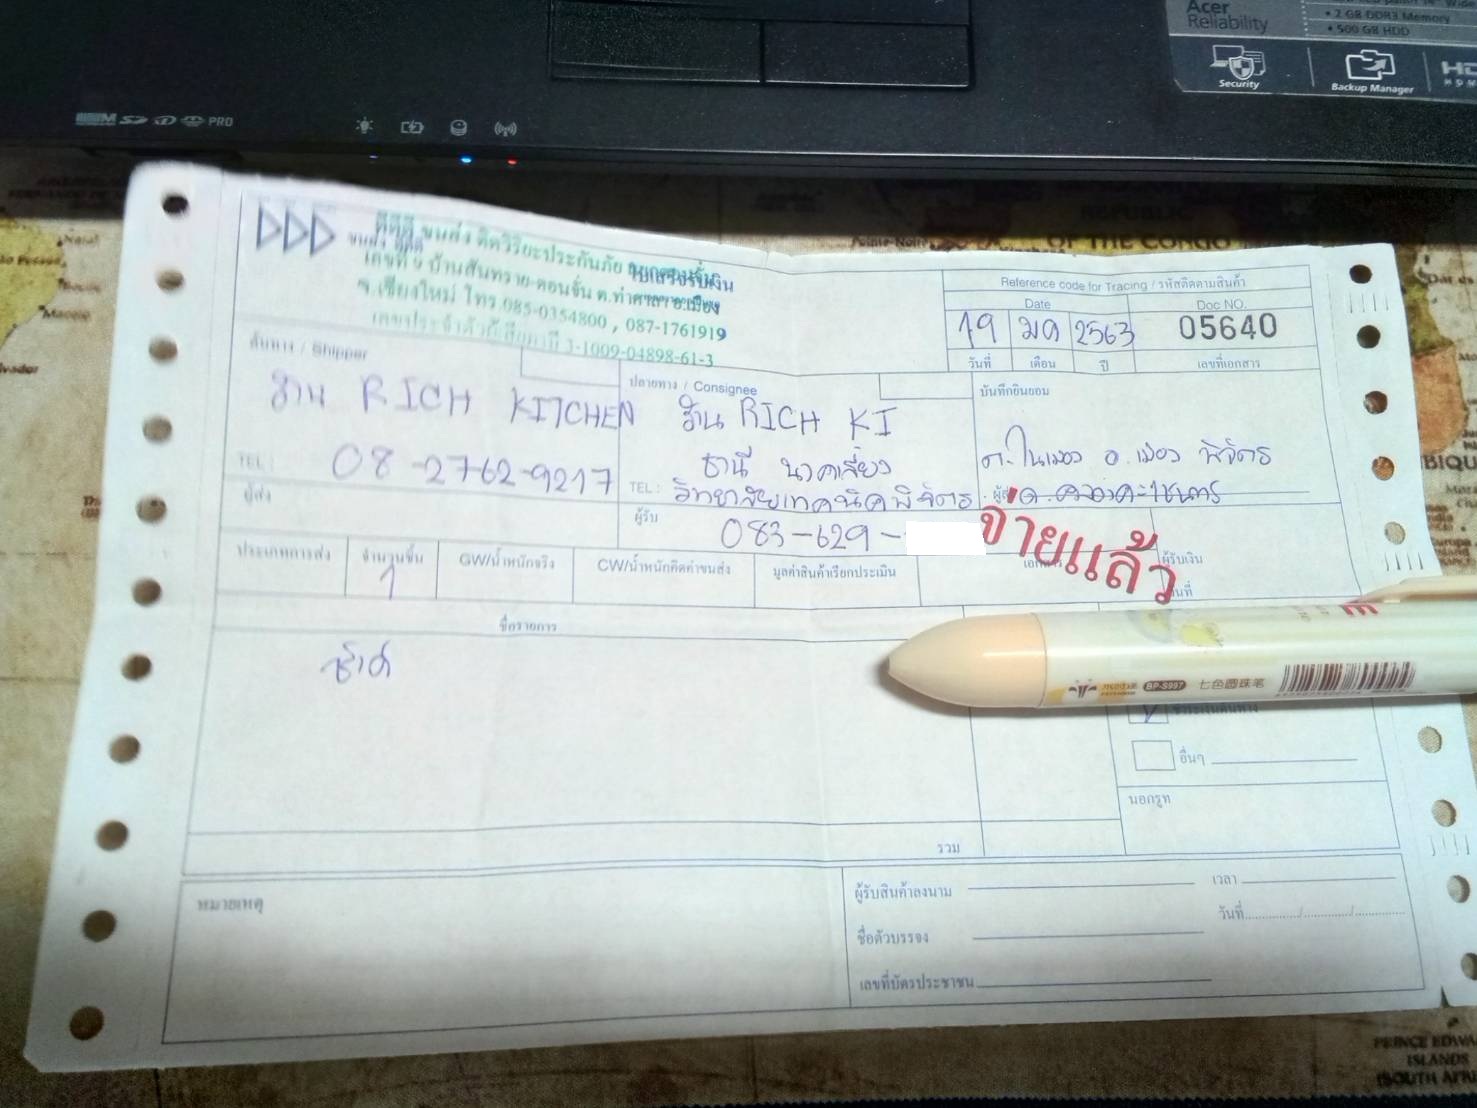 Acer
Reliability
• 2 GB DDR3 Memory
• 500 GB HDD
Security
Backup Manager
PRO
OF THE CONGO
DDD ดีดีดี ขนส่ง
ขนส่ง ดีดีดี
ใบเสร็จรับเงิน
เลขที่ 9 บ้านสันทราย-ดอนจั่น ต.ท่าศาลา อ.เมือง
จ.เชียงใหม่ โทร.085-0354800 , 087-1761919
3-1009-04898-61-3
Reference code for Tracing / รหัสติดตามสินค้า
Date
Doc NO.
19 มค 2563
05640
วันที่ เดือน ปี
เลขที่เอกสาร
ต้นทาง / Shipper
ปลายทาง / Consignee
บันทึกยินยอม
ร้าน RICH KITCHEN
ร้าน RICH KI
ธานี นาคเสี่ยง
ต.ในเมือง อ.เมือง พิจิตร
TEL :
08-2762-9217
TEL :
วิทยาลัยเทคนิคพิจิตร
ผู้ส่ง
ผู้รับ
083-629-
จ่ายแล้ว
ผู้รับเงิน
ประเภทการส่ง
จำนวนชิ้น
GW/น้ำหนักจริง
CW/น้ำหนักคิดค่าขนส่ง
มูลค่าสินค้าเรียกประเมิน
1
ชื่อรายการ
BP-S997 七色圆珠笔
อื่นๆ
นอกรูท
รวม
หมายเหตุ
ผู้รับสินค้าลงนาม
เวลา
วันที่
ชื่อตัวบรรจง
เลขที่บัตรประชาชน
PRINCE EDW
ISLANDS
(SOUTH AFR